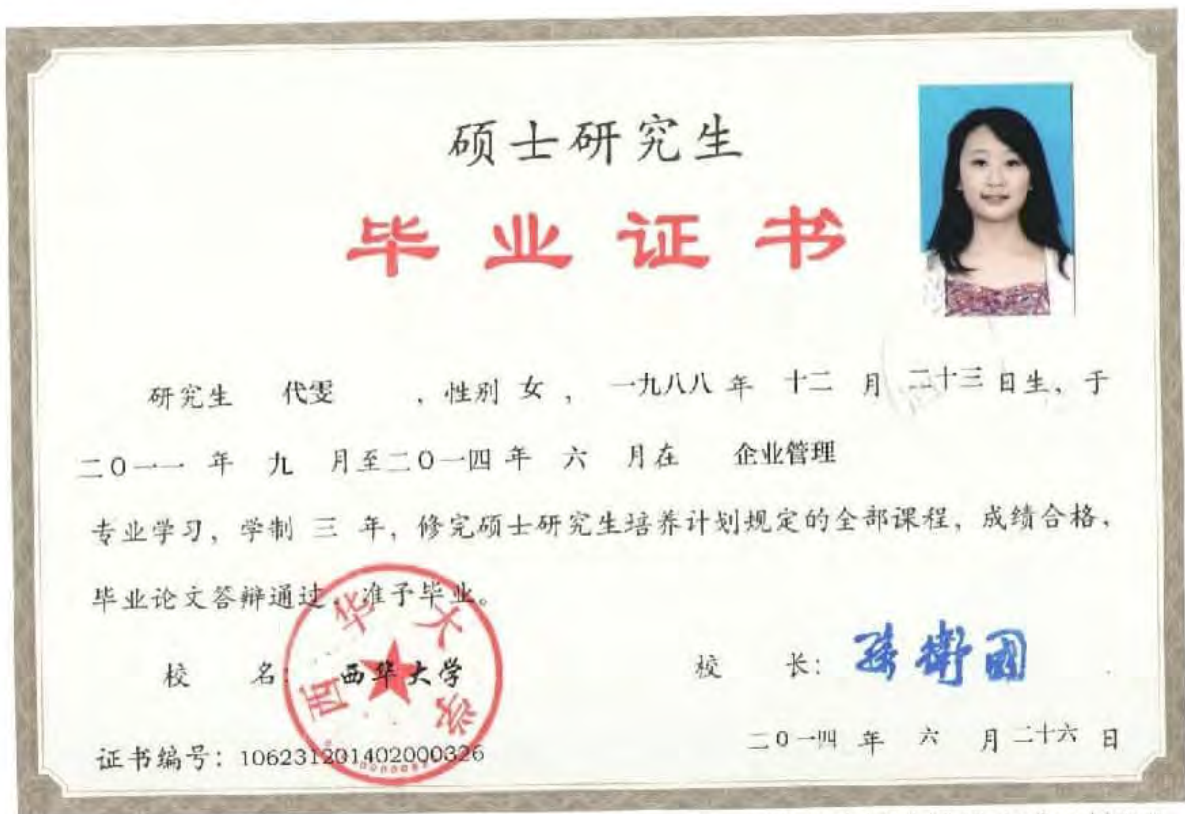 硕士研究生
毕业证书
研究生 代雯 ，性别 女 ， 一九八八 年 十二 月 二十三 日生，于
二〇一一 年 九 月至二〇一四 年 六 月在 企业管理
专业学习，学制 三 年，修完硕士研究生培养计划规定的全部课程，成绩合格，
毕业论文答辩通过，准予毕业。
校 名：西华大学
西华大学
校 长：孙卫国
证书编号：106231201402000326
二〇一四 年 六 月 二十六 日